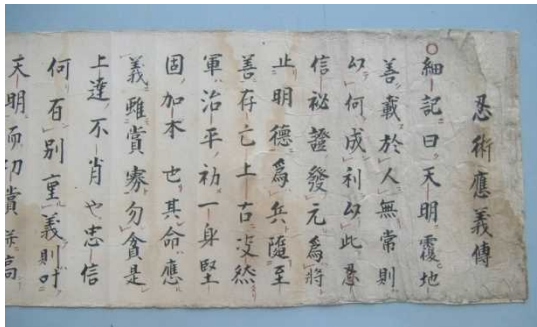 忍術應義傳
細記曰天明覆地
善載於人無常則
以何成利以此忍
信祕證發元爲將
止明德爲兵隨至
善存亡上古沒然
軍治平初一身堅
固加本也其命應
義雖賞寡勿貧是
上達不肖也忠信
何有別重義則
天明而切賞